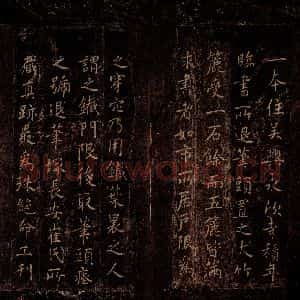 一本住吳興永欣寺積年
臨書所退筆頭置之大竹
簏受一石餘而五簏皆滿
求書者如市所居戶限為
之穿穴乃用鐵葉裹之人
謂之鐵門限後取筆頭瘞
之號退筆塚長安崔氏所
藏真跡最為殊絕命工刊